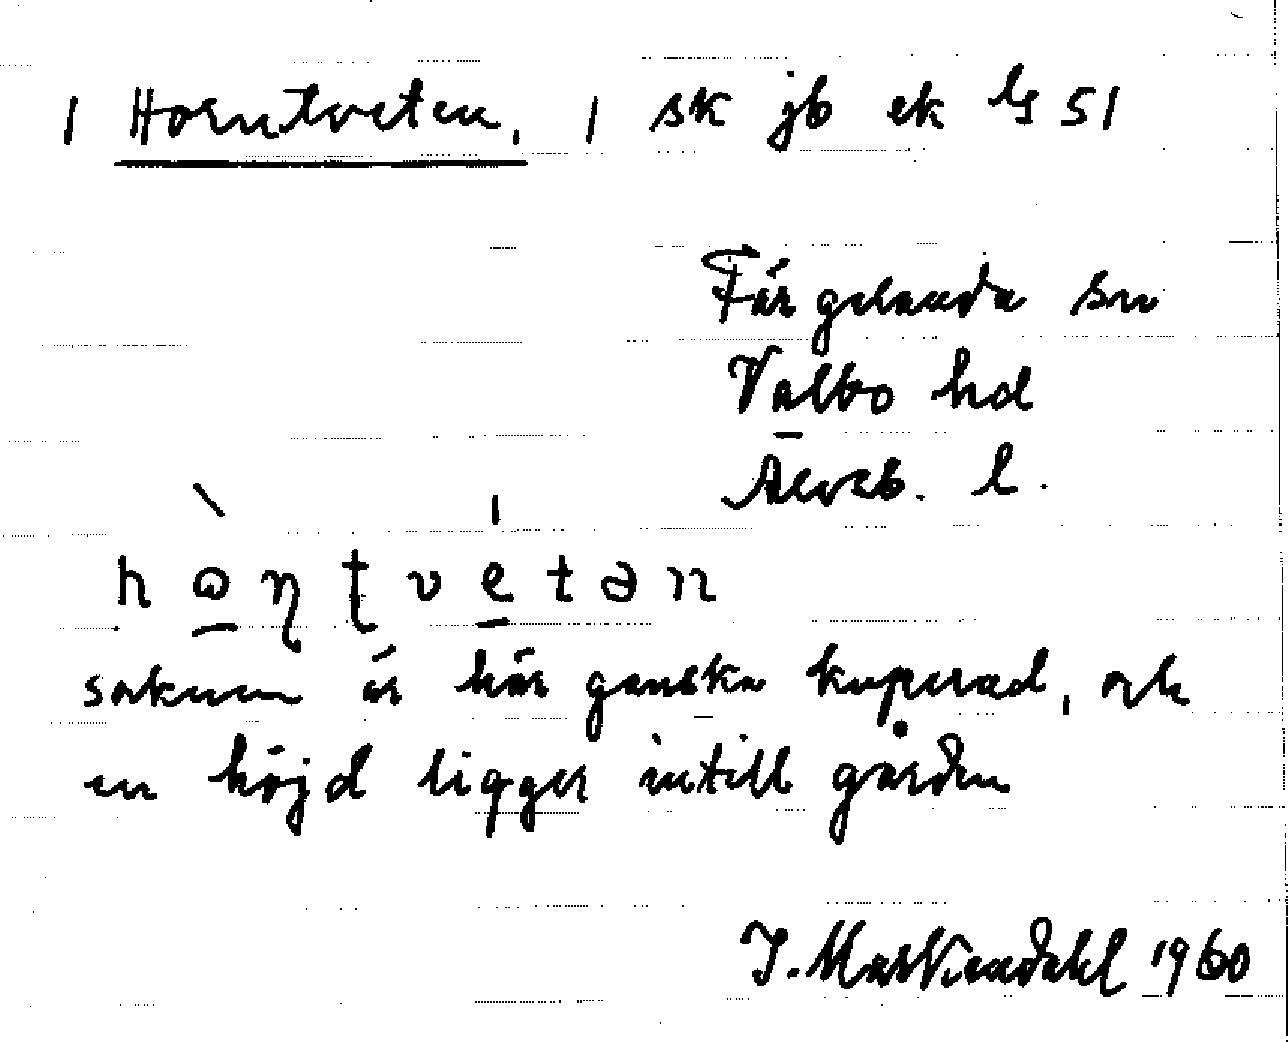 1 Horntveten, 1 sk jb ek ls 51
Färgelanda sn
Valbo hd
Älvsb. l.
hω̱ɳʈve̱tən
marken är här ganska kuperad, och
en höjd ligger intill gården
J. Markendahl 1960